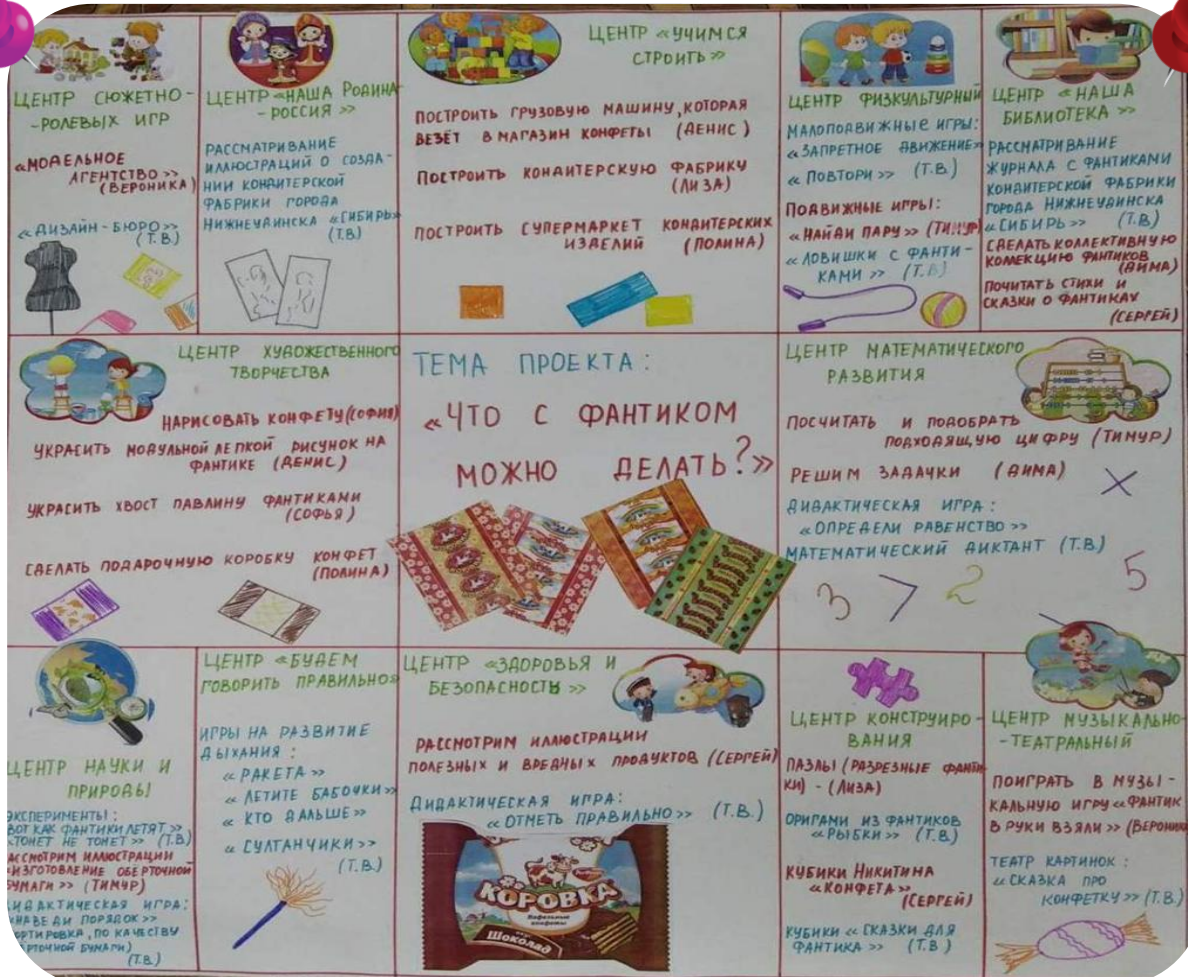 ЦЕНТР СЮЖЕТНО-
-РОЛЕВЫХ ИГР
«МОДЕЛЬНОЕ
АГЕНТСТВО»
(ВЕРОНИКА)
«ДИЗАЙН-БЮРО»
(Т.В.)
ЦЕНТР «НАША РОДИНА
-РОССИЯ»
РАССМАТРИВАНИЕ
ИЛЛЮСТРАЦИЙ О СОЗДА-
НИИ КОНДИТЕРСКОЙ
ФАБРИКИ ГОРОДА
НИЖНЕУДИНСКА «СИБИРЬ»
(Т.В)
ЦЕНТР «УЧИМСЯ
СТРОИТЬ»
ПОСТРОИТЬ ГРУЗОВУЮ МАШИНУ, КОТОРАЯ
ВЕЗЁТ В МАГАЗИН КОНФЕТЫ (ДЕНИС)
ПОСТРОИТЬ КОНДИТЕРСКУЮ ФАБРИКУ
(ЛИЗА)
ПОСТРОИТЬ СУПЕРМАРКЕТ КОНДИТЕРСКИХ
ИЗДЕЛИЙ (ПОЛИНА)
ЦЕНТР ФИЗКУЛЬТУРНЫЙ
МАЛОПОДВИЖНЫЕ ИГРЫ:
«ЗАПРЕТНОЕ ДВИЖЕНИЕ»
«ПОВТОРИ» (Т.В.)
ПОДВИЖНЫЕ ИГРЫ:
«НАЙДИ ПАРУ» (ТИМУР)
«ЛОВИШКИ С ФАНТИ-
КАМИ» (Т.В)
ЦЕНТР «НАША
БИБЛИОТЕКА»
РАССМАТРИВАНИЕ
ЖУРНАЛА С ФАНТИКАМИ
КОНДИТЕРСКОЙ ФАБРИКИ
ГОРОДА НИЖНЕУДИНСКА
«СИБИРЬ» (Т.В)
СДЕЛАТЬ КОЛЛЕКТИВНУЮ
КОЛЛЕКЦИЮ ФАНТИКОВ
(ДИМА)
ПОЧИТАТЬ СТИХИ И
СКАЗКИ О ФАНТИКАХ
(СЕРГЕЙ)
ЦЕНТР ХУДОЖЕСТВЕННОГО
ТВОРЧЕСТВА
НАРИСОВАТЬ КОНФЕТУ (СОФИЯ)
УКРАСИТЬ МОДУЛЬНОЙ ЛЕПКОЙ РИСУНОК НА
ФАНТИКЕ (ДЕНИС)
УКРАСИТЬ ХВОСТ ПАВЛИНУ ФАНТИКАМИ
(СОФЬЯ)
СДЕЛАТЬ ПОДАРОЧНУЮ КОРОБКУ КОНФЕТ
(ПОЛИНА)
ТЕМА ПРОЕКТА:
«ЧТО С ФАНТИКОМ
МОЖНО ДЕЛАТЬ?»
ЦЕНТР МАТЕМАТИЧЕСКОГО
РАЗВИТИЯ
ПОСЧИТАТЬ И ПОДОБРАТЬ
ПОДХОДЯЩУЮ ЦИФРУ (ТИМУР)
РЕШИМ ЗАДАЧКИ (ДИМА)
ДИДАКТИЧЕСКАЯ ИГРА:
«ОПРЕДЕЛИ РАВЕНСТВО»
МАТЕМАТИЧЕСКИЙ ДИКТАНТ (Т.В.)
3 7 2 5
ЦЕНТР НАУКИ И
ПРИРОДЫ
ЭКСПЕРИМЕНТЫ:
ВОТ КАК ФАНТИКИ ЛЕТЯТ»
«ТОНЕТ НЕ ТОНЕТ» (Т.В)
РАССМОТРИМ ИЛЛЮСТРАЦИИ
«ИЗГОТОВЛЕНИЕ ОБЕРТОЧНОЙ
БУМАГИ» (ТИМУР)
ДИДАКТИЧЕСКАЯ ИГРА:
«НАВЕДИ ПОРЯДОК»
СОРТИРОВКА, ПО КАЧЕСТВУ
БУМАГИ)
(Т.В.)
ЦЕНТР «БУДЕМ
ГОВОРИТЬ ПРАВИЛЬНО»
ИГРЫ НА РАЗВИТИЕ
ДЫХАНИЯ:
«РАКЕТА»
«ЛЕТИТЕ БАБОЧКИ»
«КТО ДАЛЬШЕ»
«СУЛТАНЧИКИ»
(Т.В.)
ЦЕНТР «ЗДОРОВЬЯ И
БЕЗОПАСНОСТЬ»
РАССМОТРИМ ИЛЛЮСТРАЦИИ
ПОЛЕЗНЫХ И ВРЕДНЫХ ПРОДУКТОВ (СЕРГЕЙ)
ДИДАКТИЧЕСКАЯ ИГРА:
«ОТМЕТЬ ПРАВИЛЬНО» (Т.В.)
КОРОВКА
Вафельные
конфеты
Шоколад
ЦЕНТР КОНСТРУИРО-
ВАНИЯ
ПАЗЛЫ (РАЗРЕЗНЫЕ ФАНТИ-
КИ) - (ЛИЗА)
ОРИГАМИ ИЗ ФАНТИКОВ
«РЫБКИ» (Т.В.)
КУБИКИ НИКИТИНА
«КОНФЕТА»
(СЕРГЕЙ)
КУБИКИ «СКАЗКИ ДЛЯ
ФАНТИКА» (Т.В)
ЦЕНТР МУЗЫКАЛЬНО-
-ТЕАТРАЛЬНЫЙ
ПОИГРАТЬ В МУЗЫ-
КАЛЬНУЮ ИГРУ «ФАНТИК
В РУКИ ВЗЯЛИ» (ВЕРОНИКА
ТЕАТР КАРТИНОК:
«СКАЗКА ПРО
КОНФЕТКУ» (Т.В.)